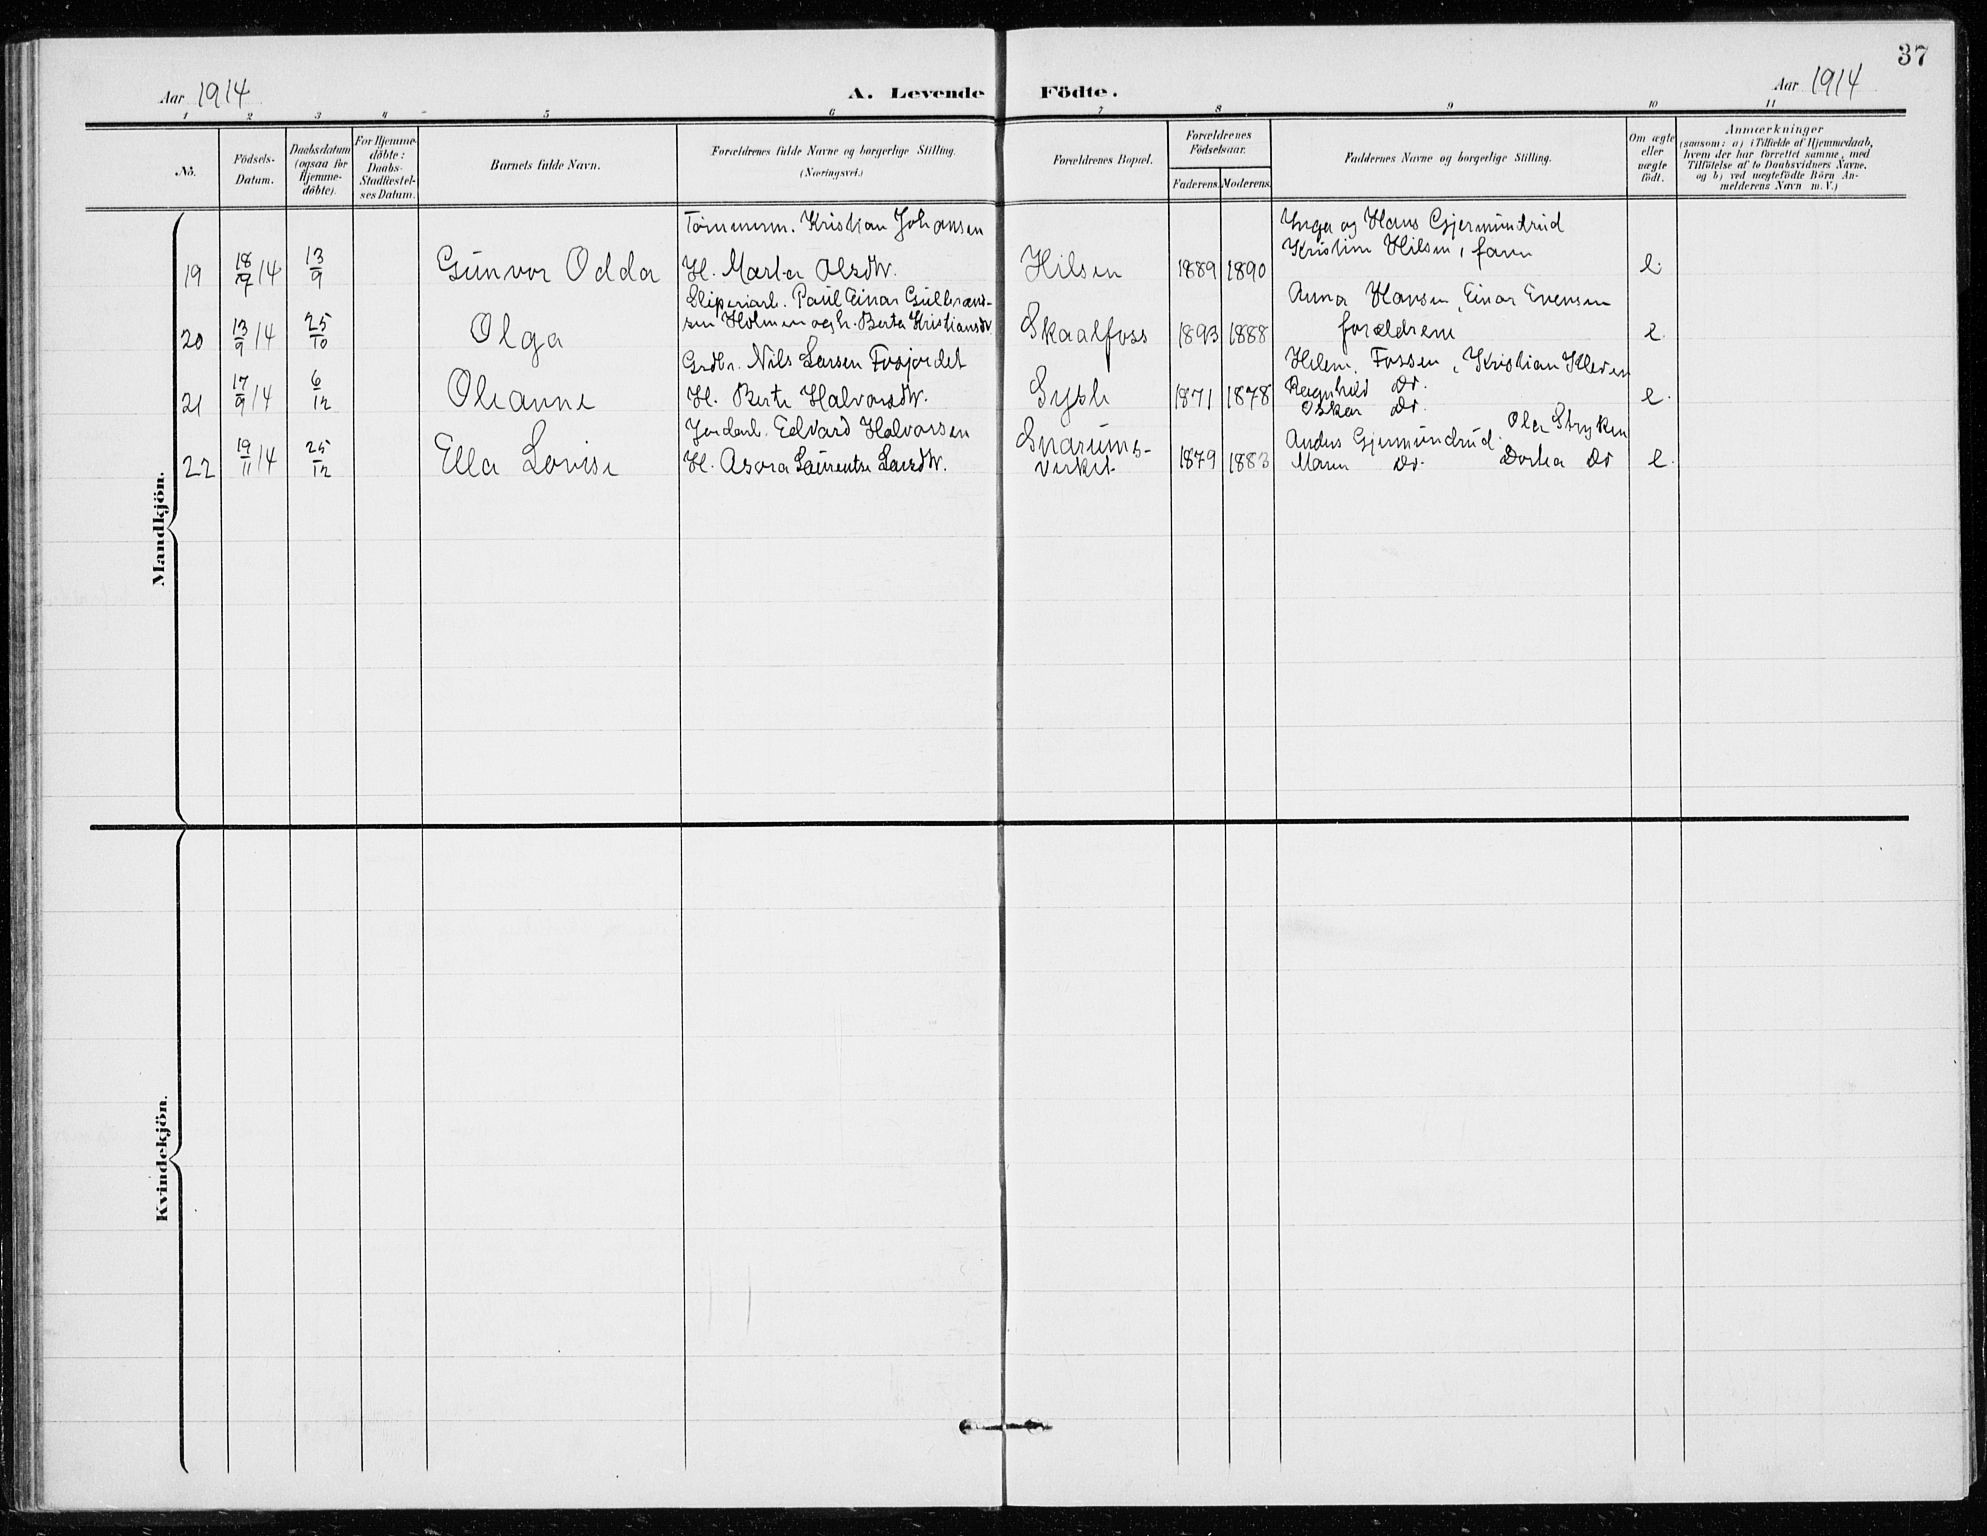 37
Aar 1914
A. Levende Födte.
Aar 1914
1 2 3 4 5 6 7 8 9 10 11
No.
Födsels-Datum.
Daabsdatum (ogsaa for Hjemme-döbte).
For Hjemme-döbte: Daabs-Stadfæstel-ses Datum.
Barnets fulde Navn.
Forældrenes fulde Navne og borgerlige Stilling. (Næringsvei.)
Forældrenes Bopæl.
Forældrenes Födselsaar.
Faderens. Moderens.
Faddernes Navne og borgerlige Stilling.
Om ægte eller uægte födt.
Anmærkninger
(saasom: a) i Tilfælde af Hjemmedaab,
hvem der har forrettet samme, med
Tilföielse af to Daabsvidners Navne,
og b) ved uægtefödte Börn An-
melderens Navn m. V.)
Mandkjön.
Tömmerm. Kristian Johansen Inga og Hans Gjermundrud
Kristine Hilsen, faren
19 18/7 14 13/9 Gunvor Odda H. Marta Olsdtr. Hilsen 1889 1890 e.
Sliperiarb. Paul Einar Gulbrand- Anna Hansen, Einar Evensen
20 13/9 14 25/10 Olga sen Holmen og h. Berta Kristiansdtr. Skaalfoss 1893 1888 forældrene e.
Grdbr. Nils Larsen Fosjordet Helene Fossen, Kristian Kleven
21 17/9 14 6/12 Oleanne H. Berte Halvorsdtr. 1871 1878 Ragnhild Do. e.
Oskar Do.
Jordarb. Edvard Halvorsen Snarums- Ole Stryken
22 19/11 14 25/12 Ella Lovise H. Asora Laurentse Larsdtr. verket 1879 1883 Anders Gjermundrud. e.
Maren Do. Dortea Do
Kvindekjön.